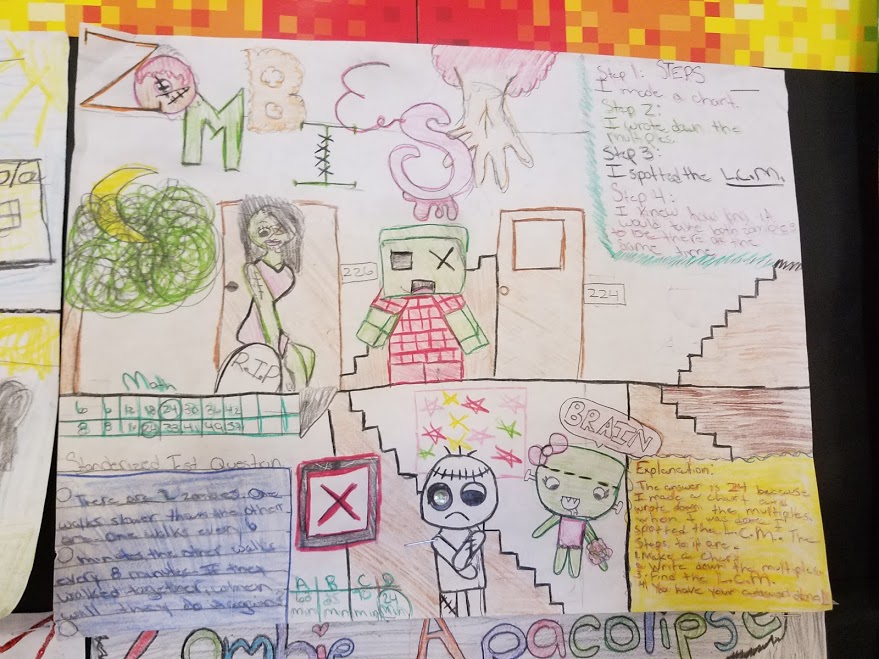 ZOMBIES!
Step 1: STEPS
I made a chart
Step 2:
I wrote down the
multiples
Step 3:
I spotted the L.C.M.
Step 4:
I knew how long it
would take both zombies
to be there at the
same time
226
224
R.I.P
Math
6 6 12 18 24 30 36 42
8 8 16 24
Standerized Test Question
There are 2 zombies. One
walks slower than the other
one. one walks every 6
minutes the other walks
every 8 minutes. If they
walked together, when
will they do it again?
X
A B C D
min min min 24 min
BRAIN
Explanation:
The answer is 24 because
I made a chart and
wrote down the multiples
when I was done I
spotted the L.C.M. The
steps to it are:
1. Make a chart
2. Write down the multiples
3. Find the L.C.M.
4. You have your answer
Zombie Apacolipse